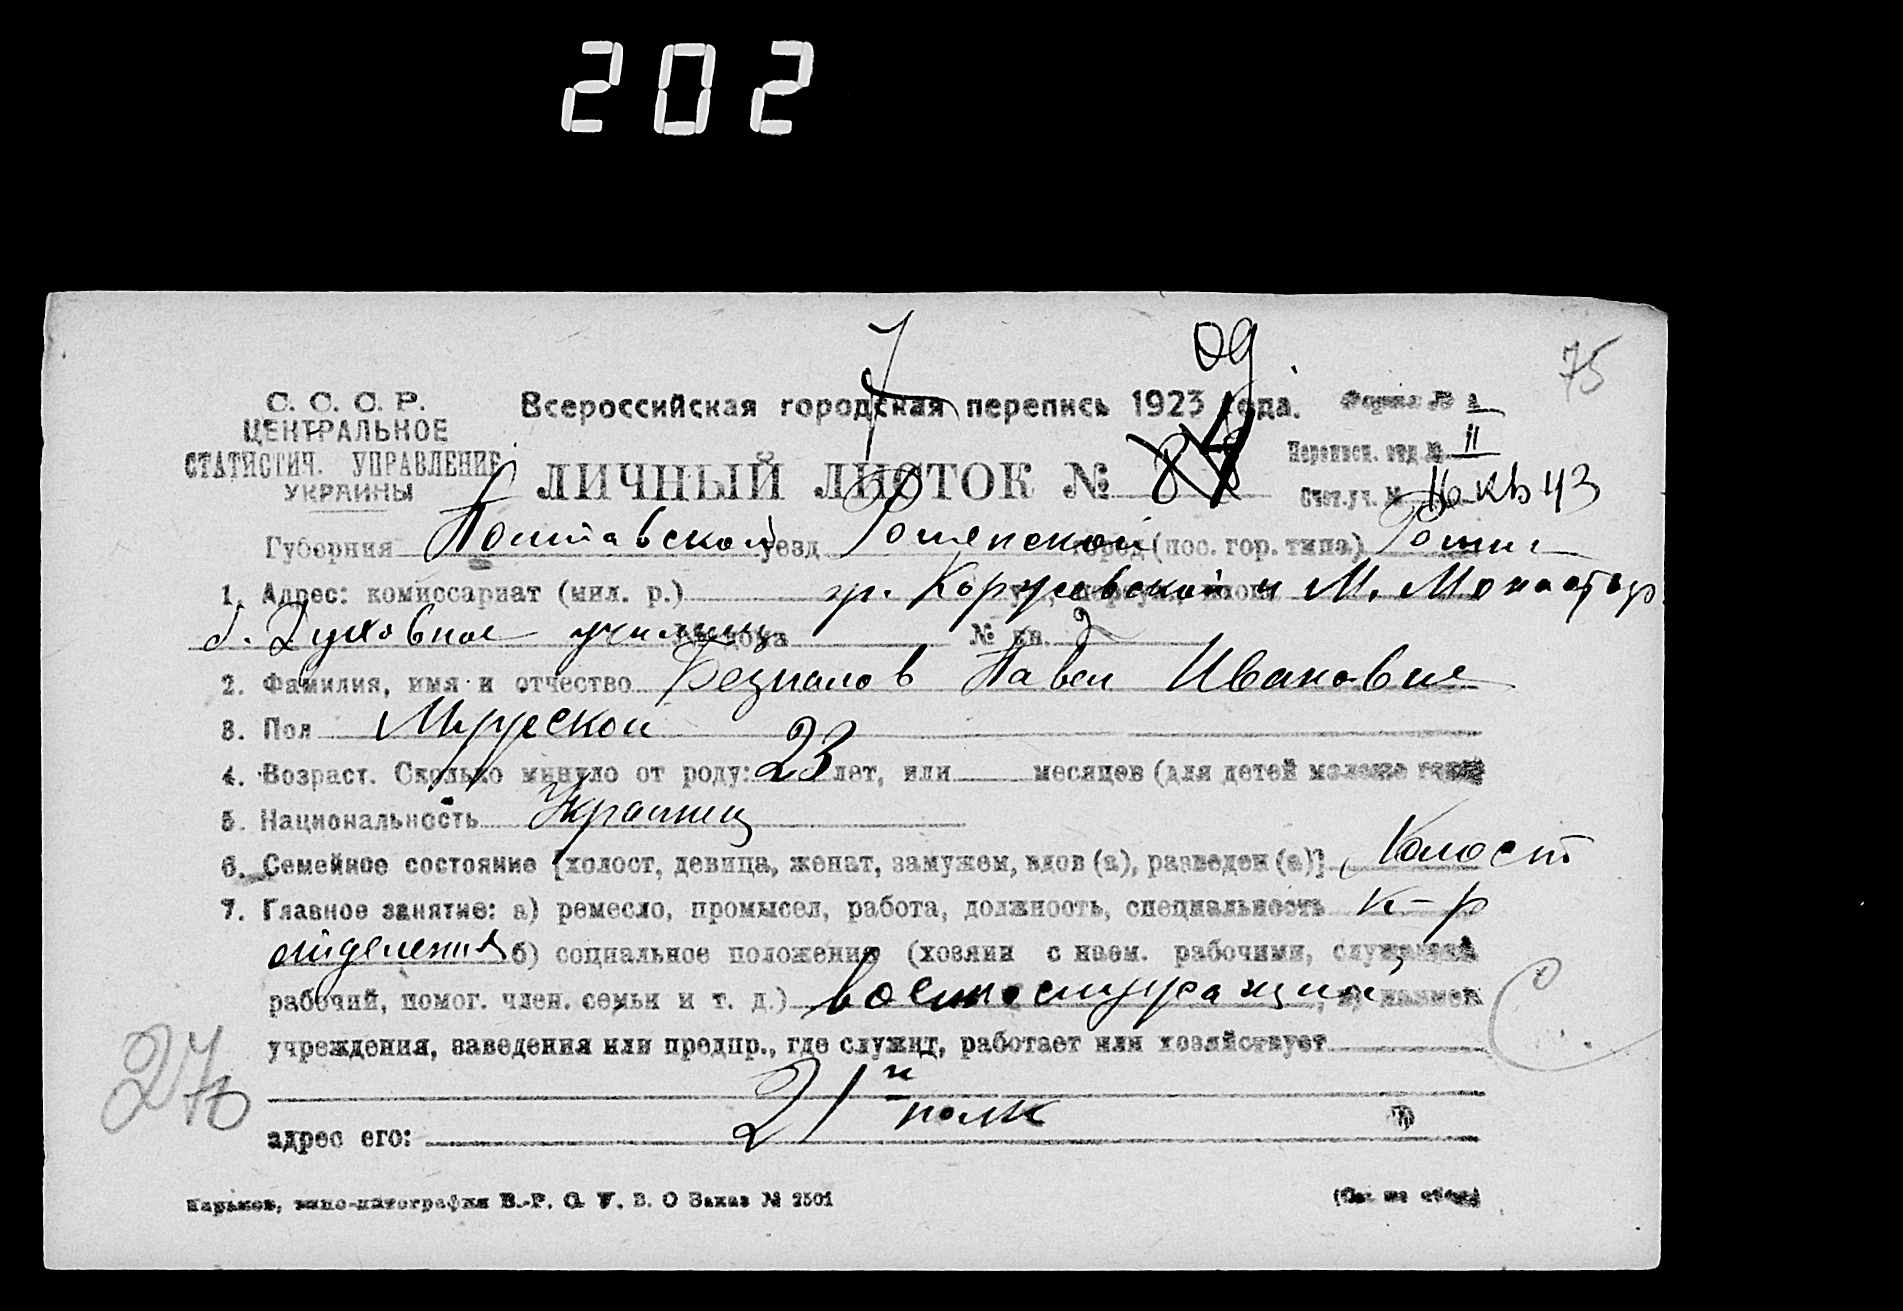 202
75
7
09
С. С. С. Р.
ЦЕНТРАЛЬНОЕ
СТАТИСТИЧ. УПРАВЛЕНИЕ
УКРАИНЫ
Всероссийская городская перепись 1923 года.
Форма №
Переписн. отд. № II
ЛИЧНЫЙ ЛИСТОК №
Счет. уч. № 16 кв 43
Губерния Полтавской уезд Роменской город (пос. гор. типа) Ромны
1. Адрес: комиссариат (мил. р.) и М. Монастыр
б. Духовное училищ № дома № кв. 2
2. Фамилия, имя и отчество Безпалов Павел Иванович
3. Пол Мужской
4. Возраст. Сколько минуло от роду: 23 лет, или месяцев (для детей моложе года)
5. Национальность Украинец
6. Семейное состояние [холост, девица, женат, замужем, вдов (а), разведен (а)] Холост
7. Главное занятие: а) ремесло, промысел, работа, должность, специальность к-р
отделения б) социальное положение (хозяин с наем. рабочими, служащий
рабочий, помог. член. семьи и т. д.) военнослужащий, в) наимен
учреждения, заведения или предпр., где служит, работает или хозяйствует
21й полк
адрес его:
Харьков, типо-литография В.-Р. С. У. В. О Заказ № 2501
(См. на обор.)